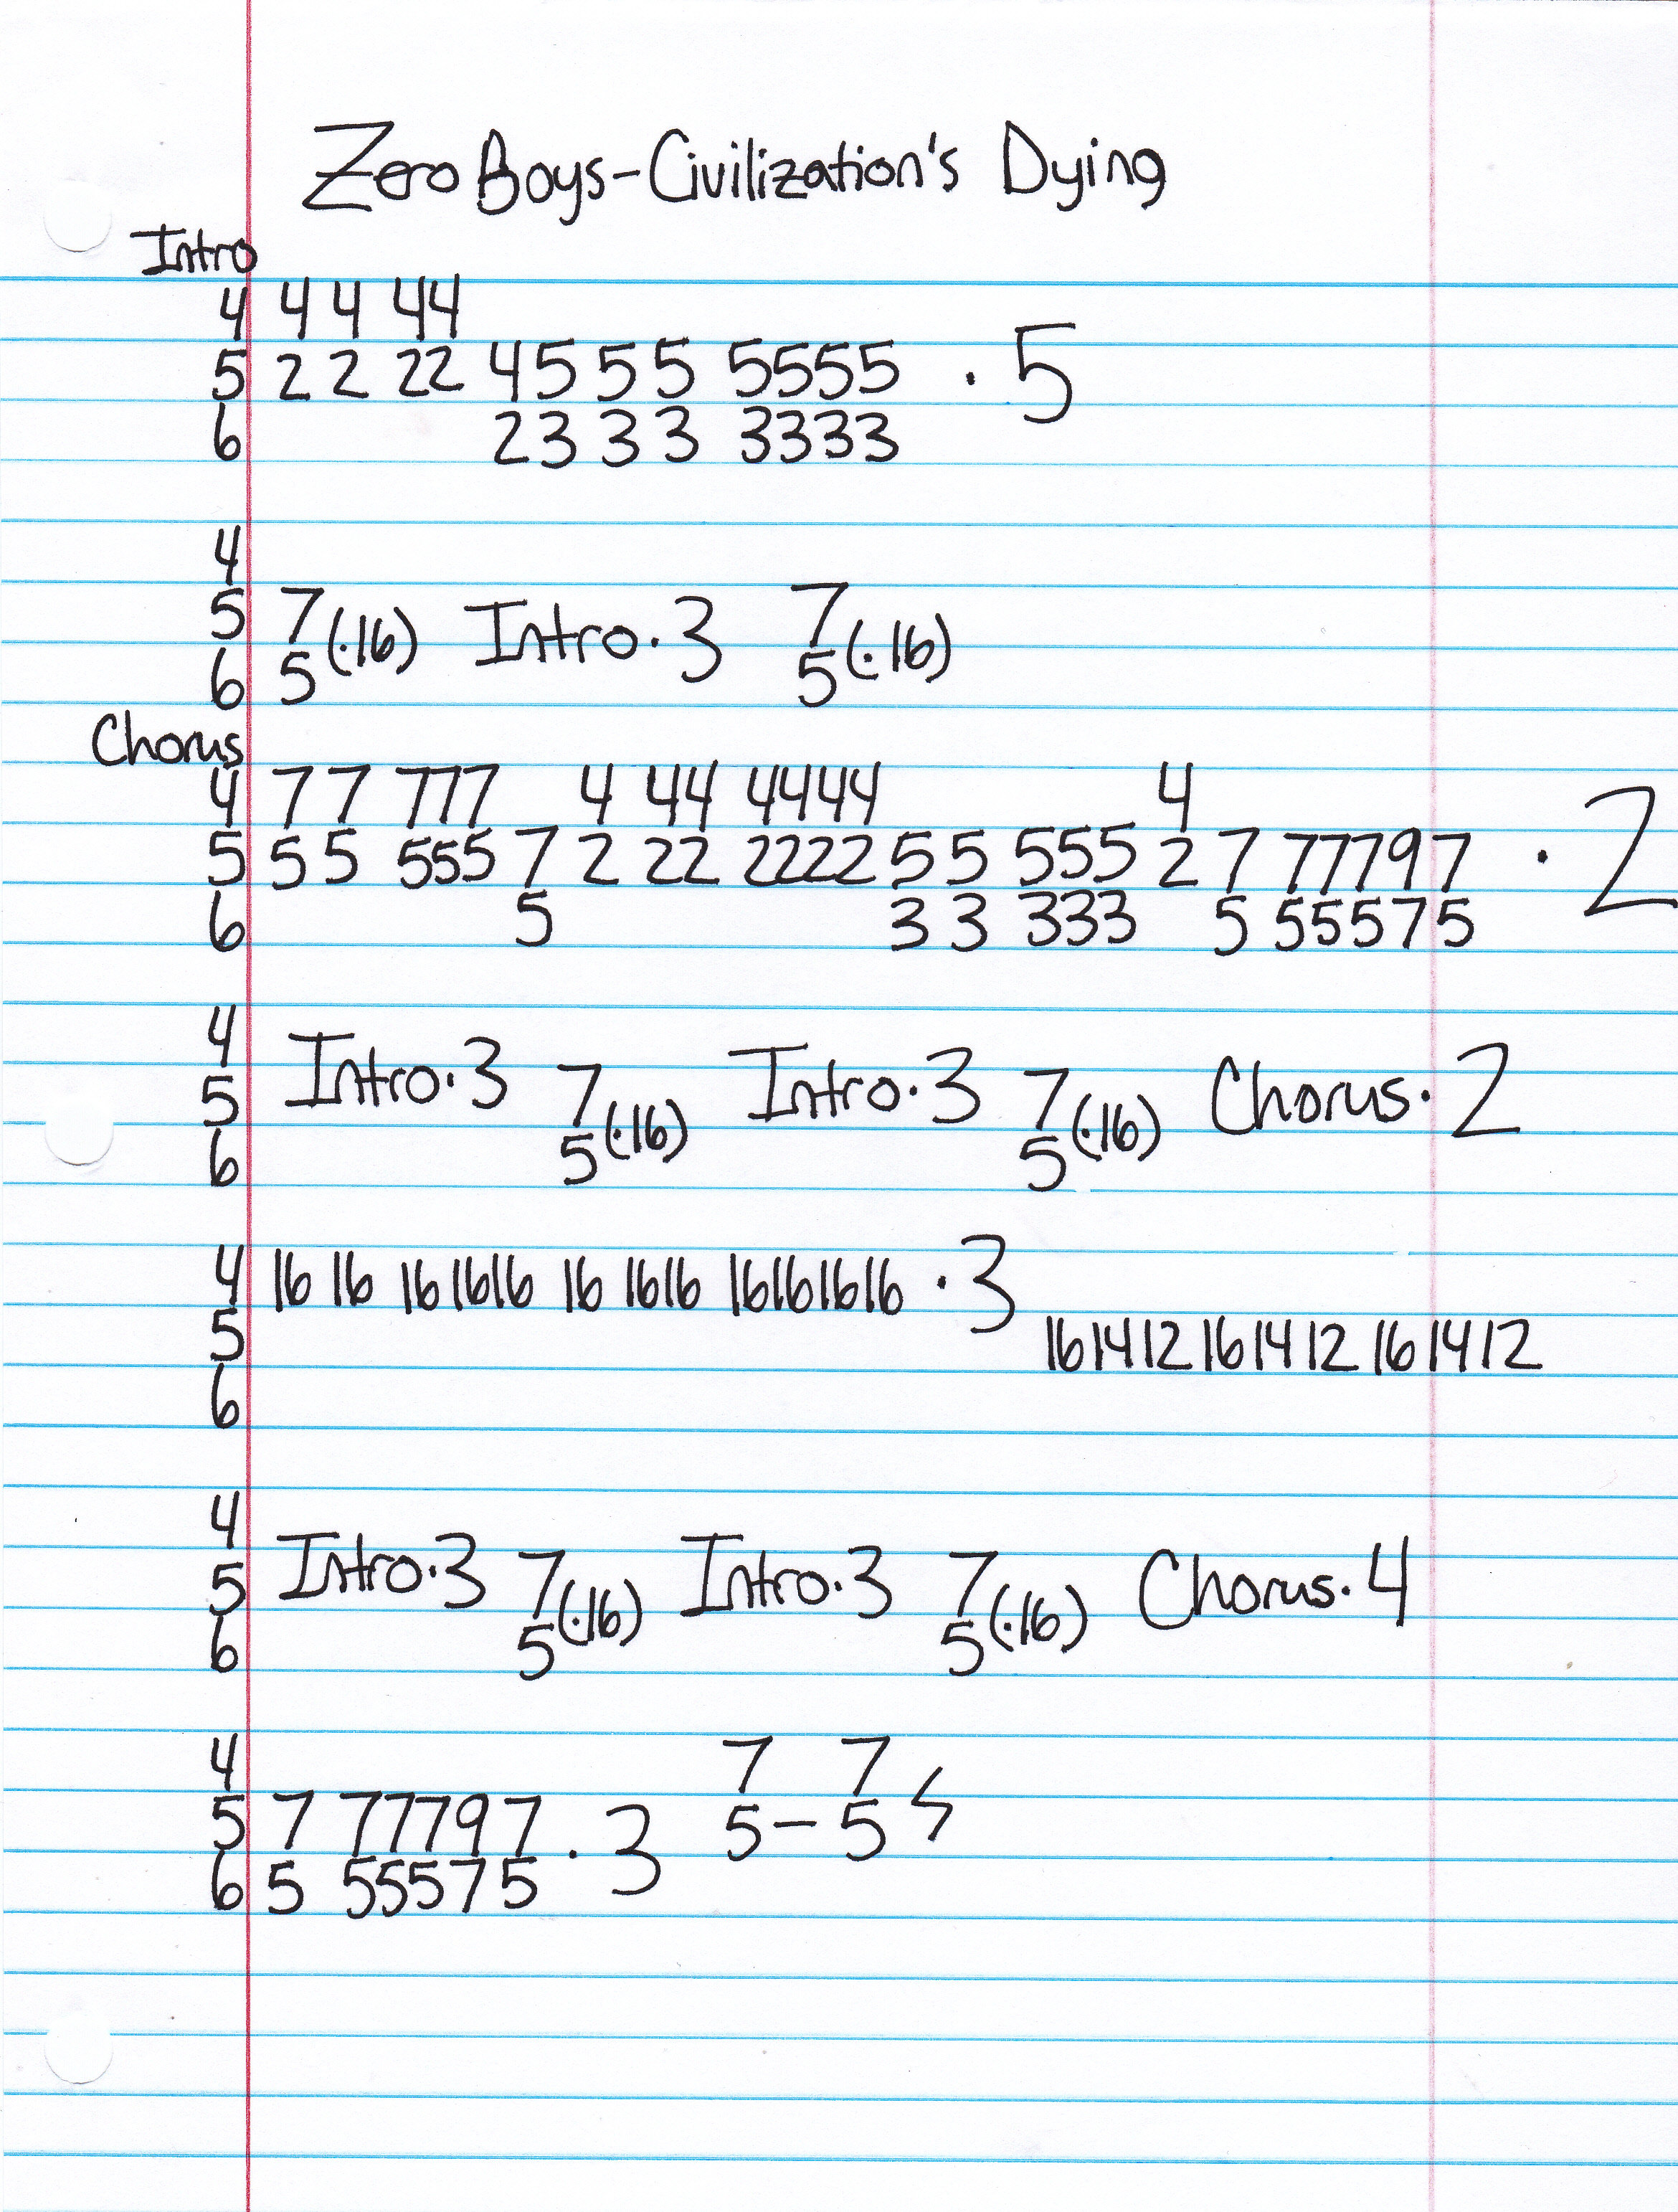 Zero Boys-Civilization's Dying
Intro
4 4 4 44
5 2 2 22 45 5 5 5555 · 5
6 23 3 3 3333
4
5 7(·16) Intro·3 7(·16)
6 5 5
Chorus
4 7 7 777 4 44 4444 4
5 5 5 555 7 2 22 2222 5 5 555 2 7 77797 · 2
6 5 3 3 333 5 55575
4
5 Intro·3 7(·16) Intro·3 7(·16) Chorus·2
6 5 5
4 16 16 16 1616 16 1616 16161616 ·3
5 161412 161412 161412
6
4
5 Intro·3 7(·16) Intro·3 7(·16) Chorus·4
6 5 5
4 7 7
5 7 77797 ·3 5-5
6 5 55575